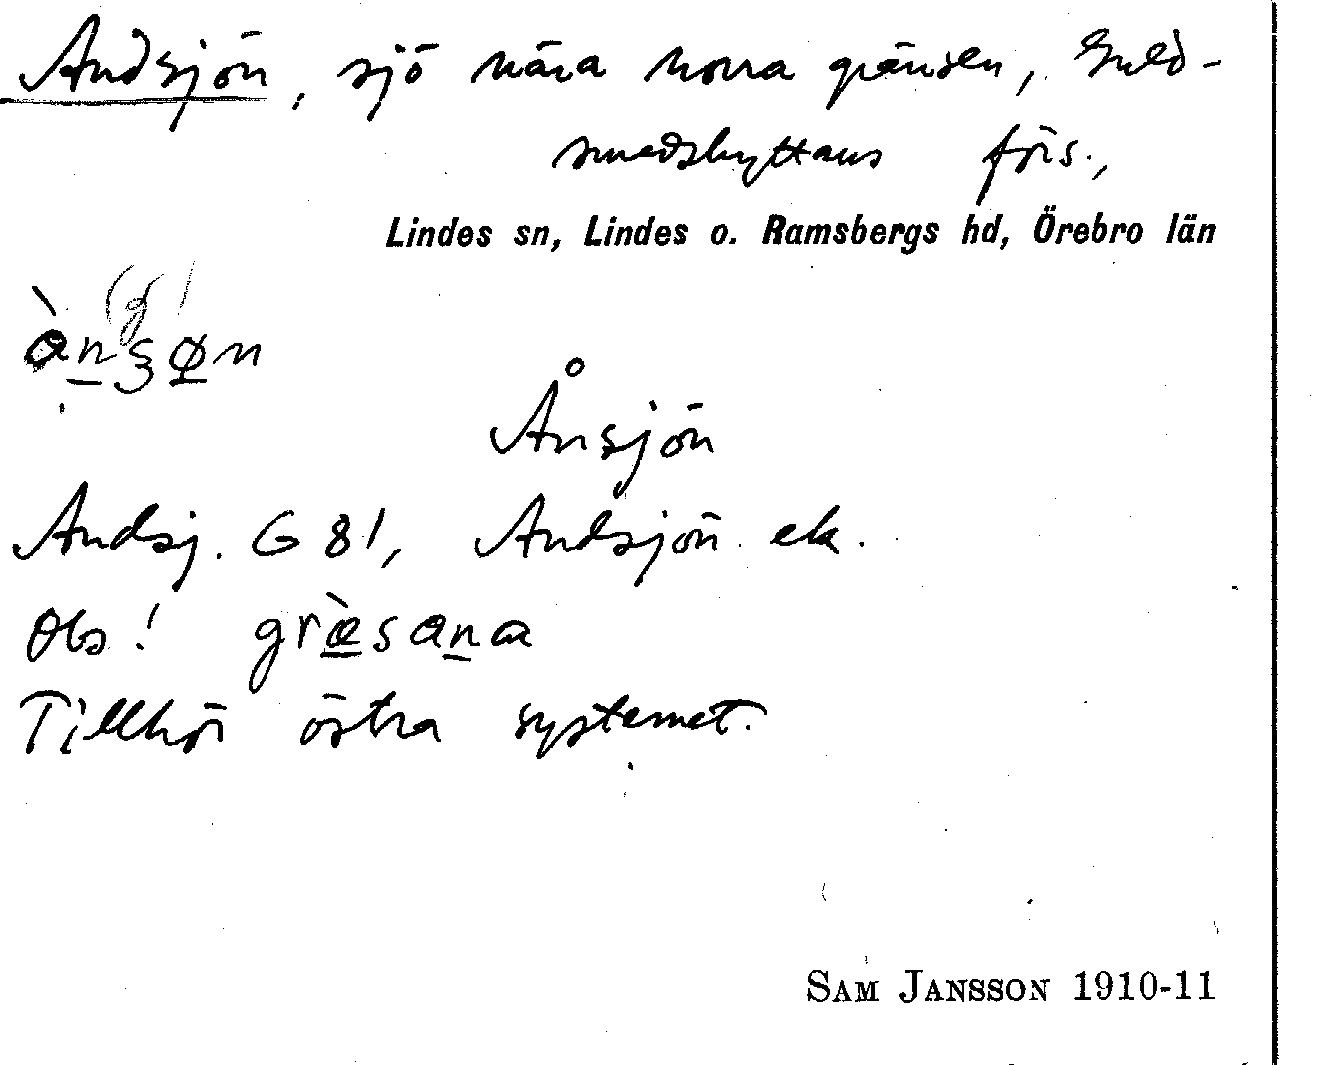 Andsjön, sjö nära norra gränsen, Guld-
smedshyttans förs.,
Lindes sn, Lindes o. Ramsbergs hd, Örebro län
(d)
ànʂøn
Ånsjön
Andsj. G 81, Andsjön ek.
Obs! græ̀sana
Tillhör östra systemet.
SAM JANSSON 1910-11